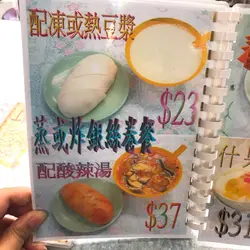 配凍或熱豆漿
$23
蒸或炸銀絲卷餐
配酸辣湯
$37
什
$3